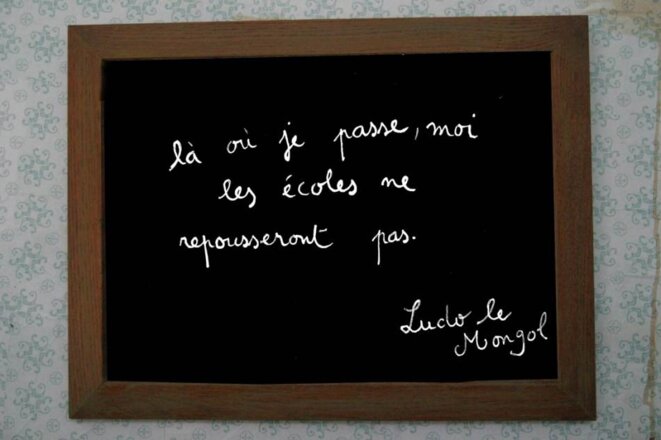 là où je passe, moi
les écoles ne
repousseront pas.
Ludo le
Mongol